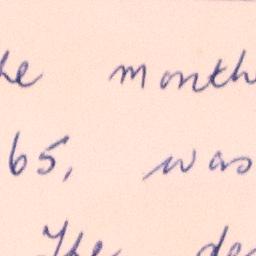 he month
65, was
The de